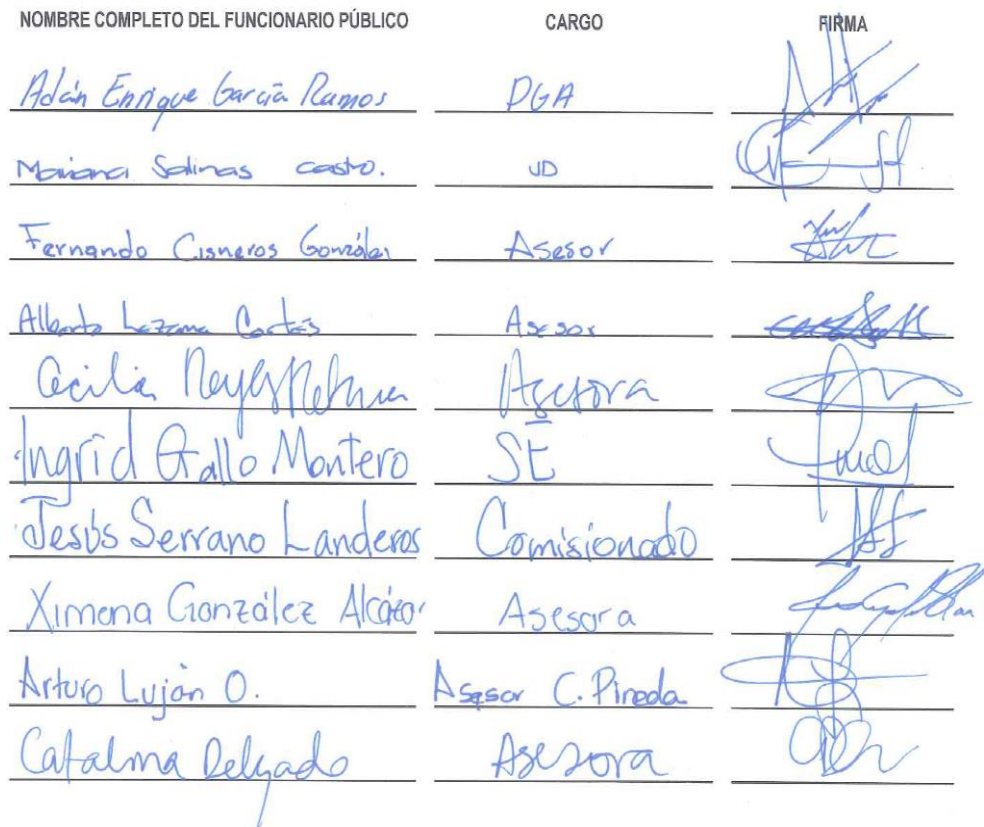 NOMBRE COMPLETO DEL FUNCIONARIO PÚBLICO CARGO FIRMA
Adán Enrique García Ramos DGA
Mariana Salinas castro. JD
Fernando Cisneros González Asesor
Alberto Lezama Cortés Asesor
Cecilia Reyes Asesora
Ingrid Gallo Montero SE
Jesús Serrano Landeros Comisionado
Ximena González Alcázar Asesora
Arturo Luján O. Asesor C. Pineda
Catalina Delgado Asesora